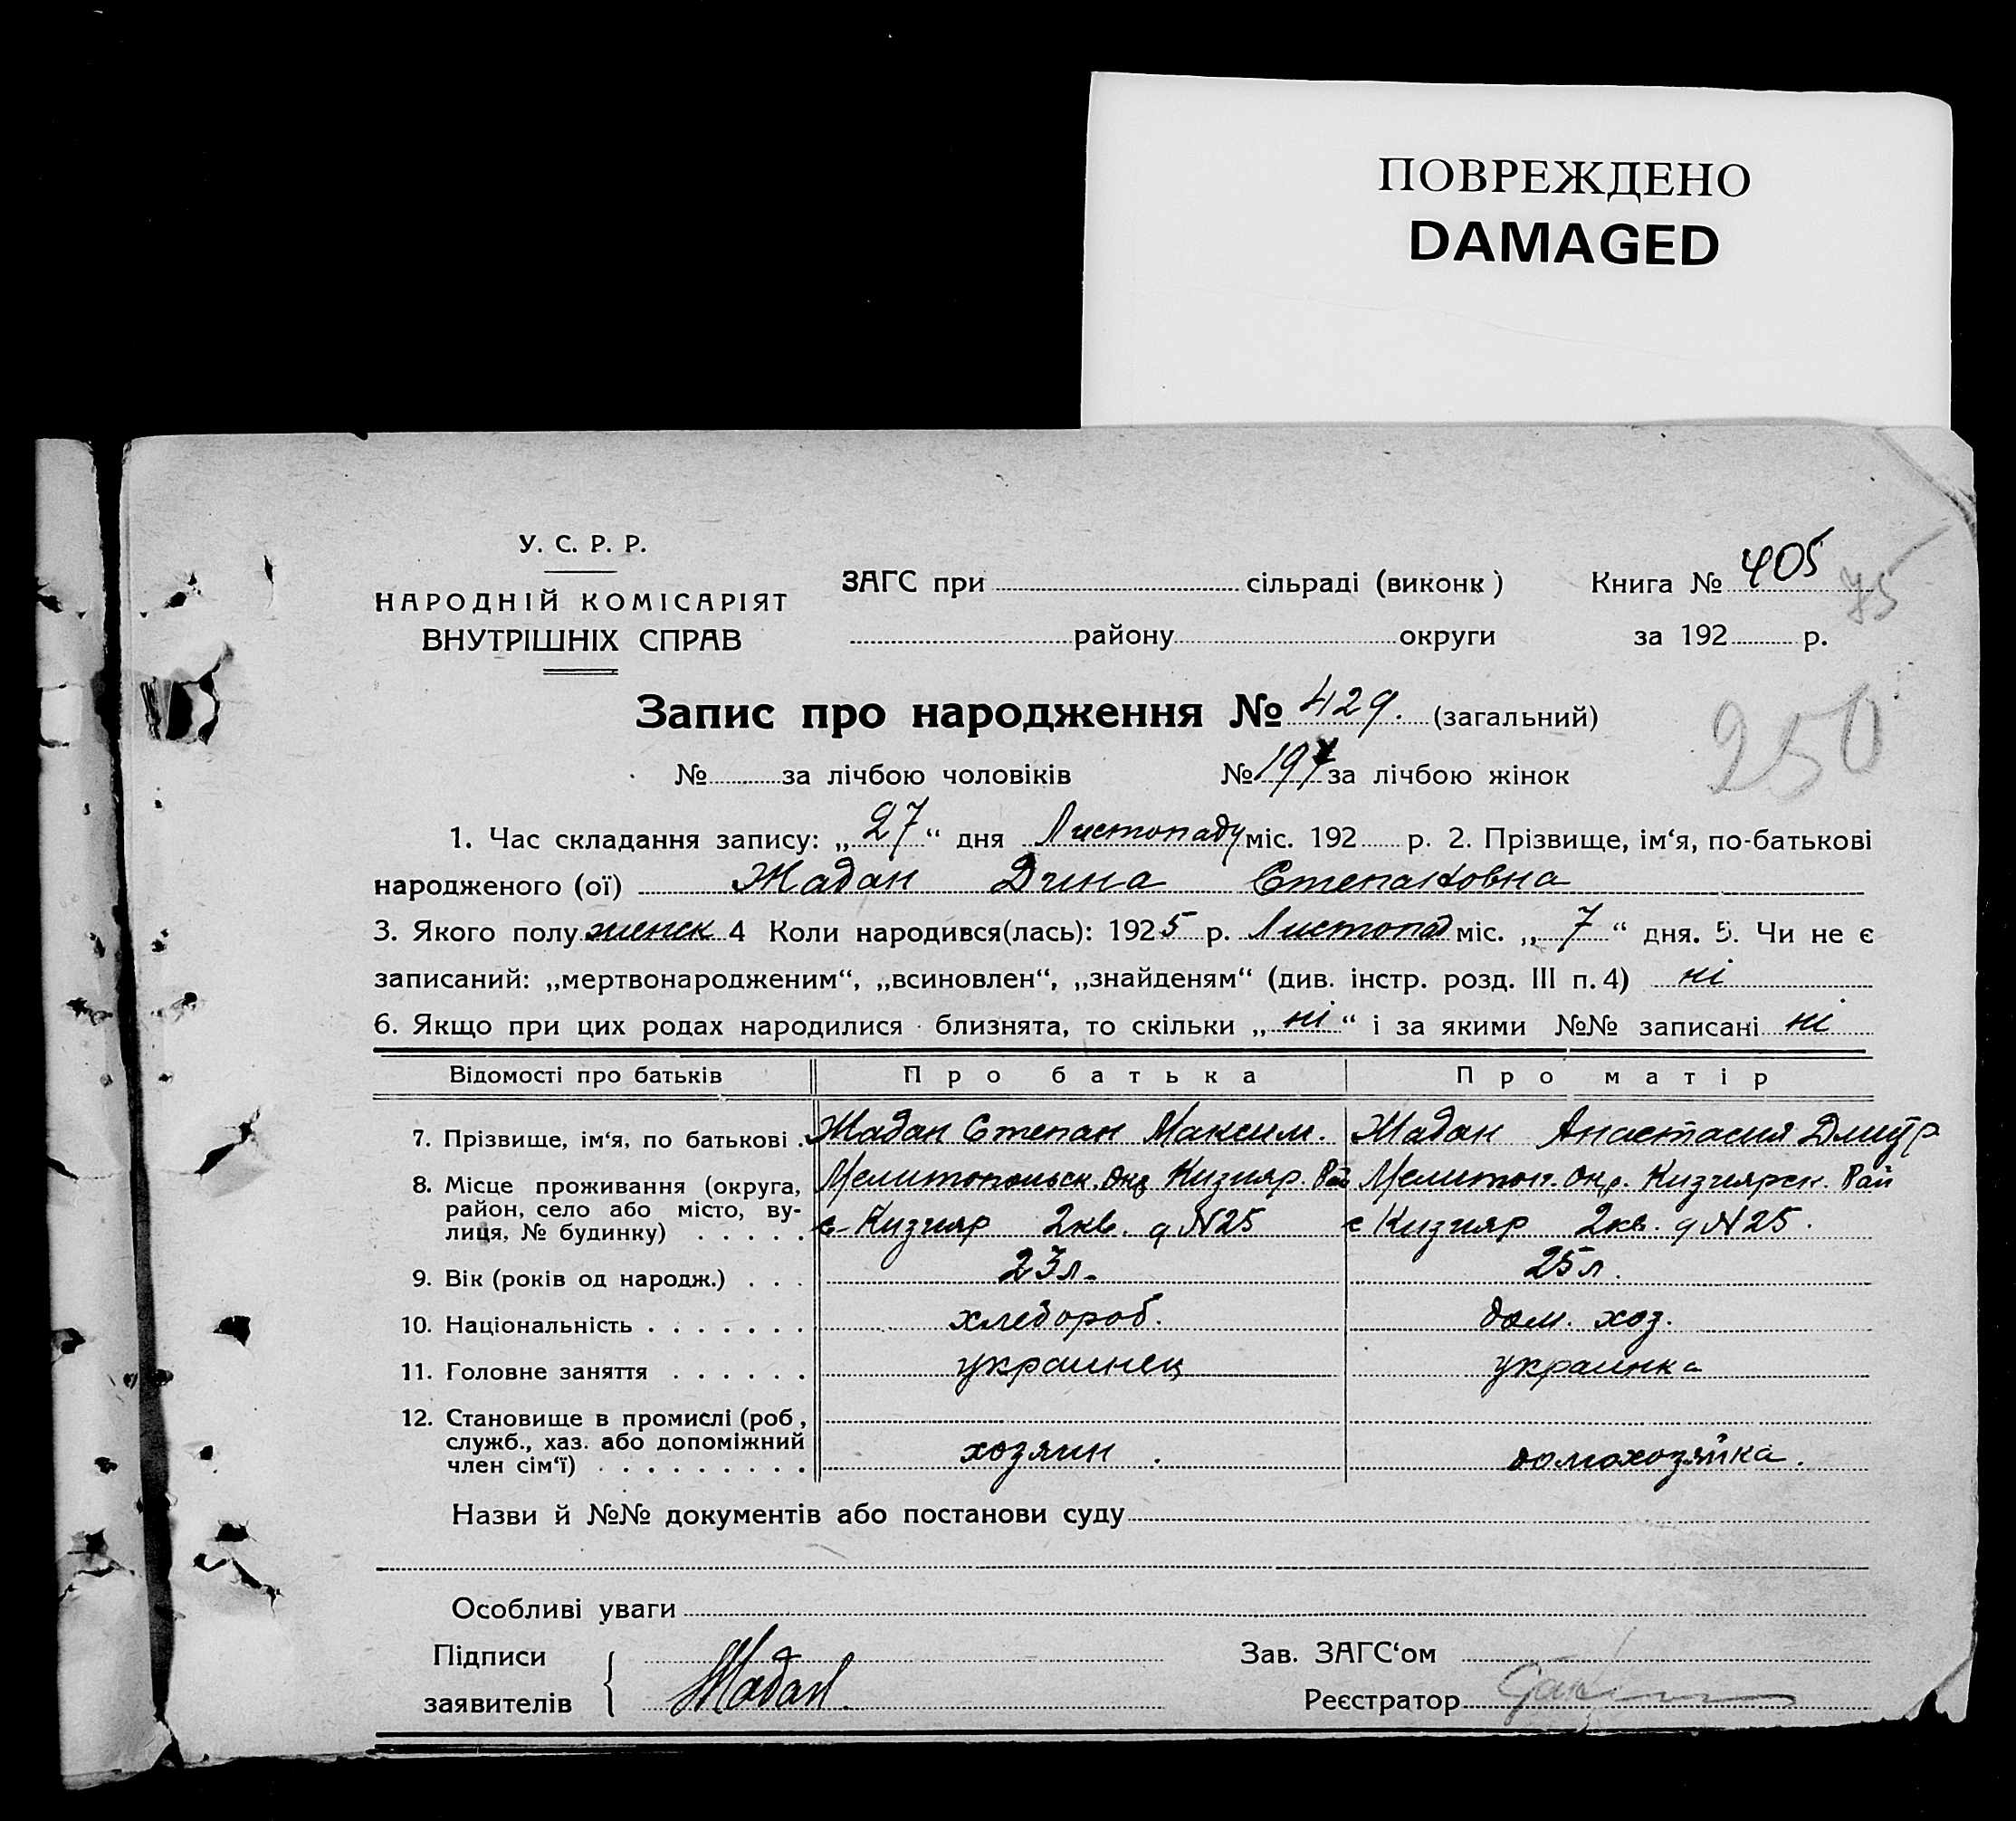 ПОВРЕЖДЕНО
DAMAGED
У. С. Р. Р.
НАРОДНІЙ КОМІСАРІЯТ
ВНУТРІШНІХ СПРАВ
ЗАГС при сільраді (виконк)
району округи
Книга № 405
75
за 192 р.
Запис про народження № 429. (загальний)
250
№ за лічбою чоловіків № 197 за лічбою жінок
1. Час складання запису: „27“ дня Листопаду міс. 192 р. 2. Прізвище, ім‘я, по-батькові
народженого (ої) Жадан Дина Степановна
3. Якого полу женск 4 Коли народився(лась): 1925 р. Листопад міс. „7“ дня. 5. Чи не є
записаний: „мертвонародженим“, „всиновлен“, „знайденям“ (див. інстр. розд. III п. 4) ні
6. Якщо при цих родах народилися близнята, то скільки „ні“ і за якими №№ записані ні
Відомості про батьків Про батька Про матір
7. Прізвище, ім‘я, по батькові . Жадан Степан Максим. Жадан Анастасия Дмитр
8. Місце проживання (округа, Мелитопольск. Окр Кизияр. Рай Мелитоп. Окр. Кизиярск. Рай
район, село або місто, ву-
лиця, № будинку) . . . . . с-Кизияр 2кв. д N25 с Кизияр 2кв. д N25.
9. Вік (років од народж.) . . . 23л. 25л.
10. Національність . . . . . . . хлебороб. дом. хоз.
11. Головне заняття . . . . . . украинец украинка
12. Становище в промислі (роб,
служб., хаз. або допоміжний
член сім‘ї) . . . . . . . . . хозяин . домохозяйка.
Назви й №№ документів або постанови суду
Особливі уваги
Підписи
заявителів Жадан.
Зав. ЗАГС‘ом
Реєстратор